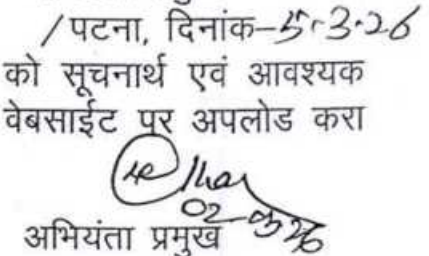 /पटना, दिनांक-5-3-26
को सूचनार्थ एवं आवश्यक
वेबसाईट पर अपलोड करा
02-03-26
अभियंता प्रमुख